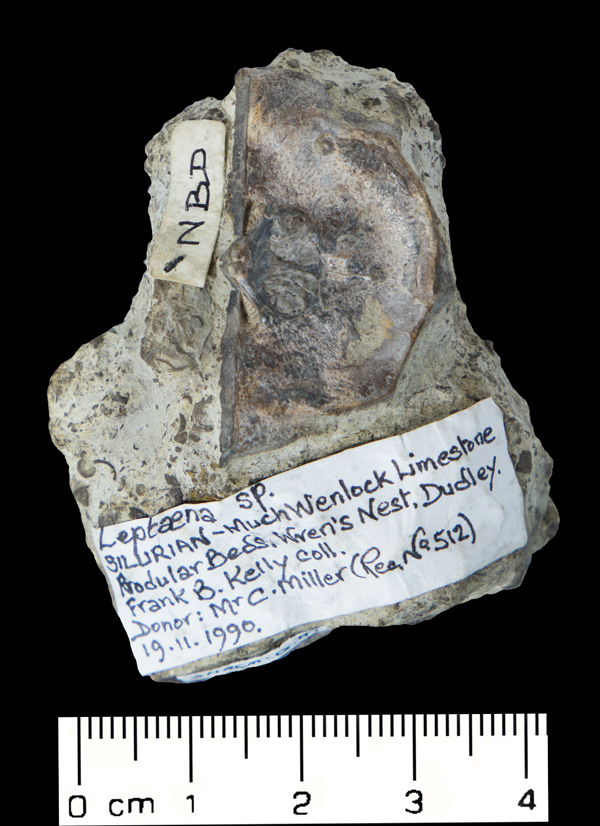 NBD
Leptaena sp.
SILURIAN - Much Wenlock Limestone
Nodular Beds, Wren's Nest, Dudley.
Frank B. Kelly coll.
Donor: Mr C. Miller (Reg, No 512)
19.11.1990.
0 cm 1 2 3 4